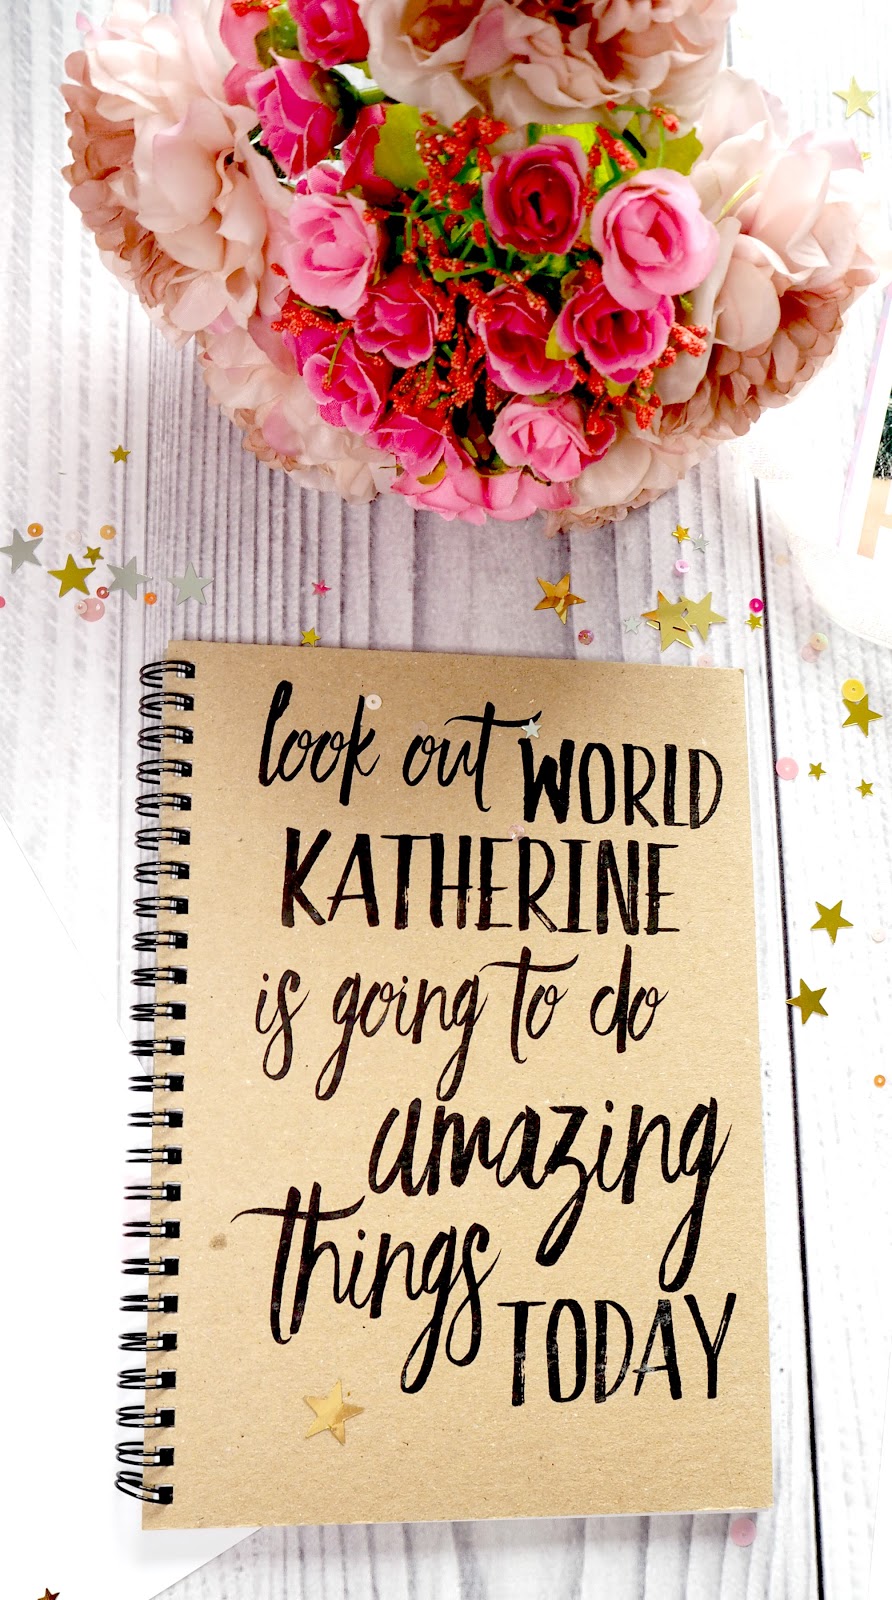 look out WORLD
KATHERINE
is going to do
amazing
things
TODAY